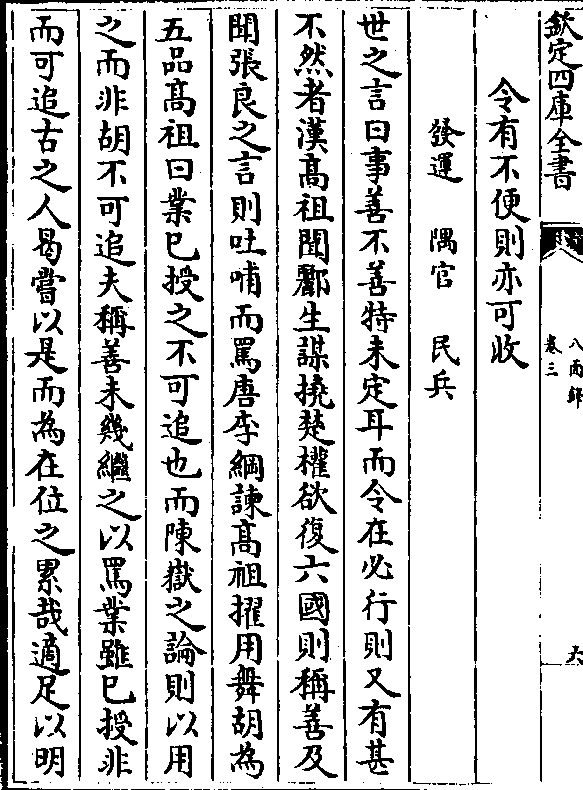 欽定四庫全書
八面鋒
卷三
令有不便則亦可收
發運　隅官　民兵
世之言曰事善不善特未定耳而令在必行則又有甚
不然者漢高祖聞酈生謀撓楚權欲復六國則稱善及
聞張良之言則吐哺而罵唐李綱諫高祖擢用舞胡為
五品高祖曰業已授之不可追也而陳嶽之論則以用
之而非胡不可追夫稱善未幾繼之以罵業雖已授非
而可追古之人曷嘗以是而為在位之累哉適足以明